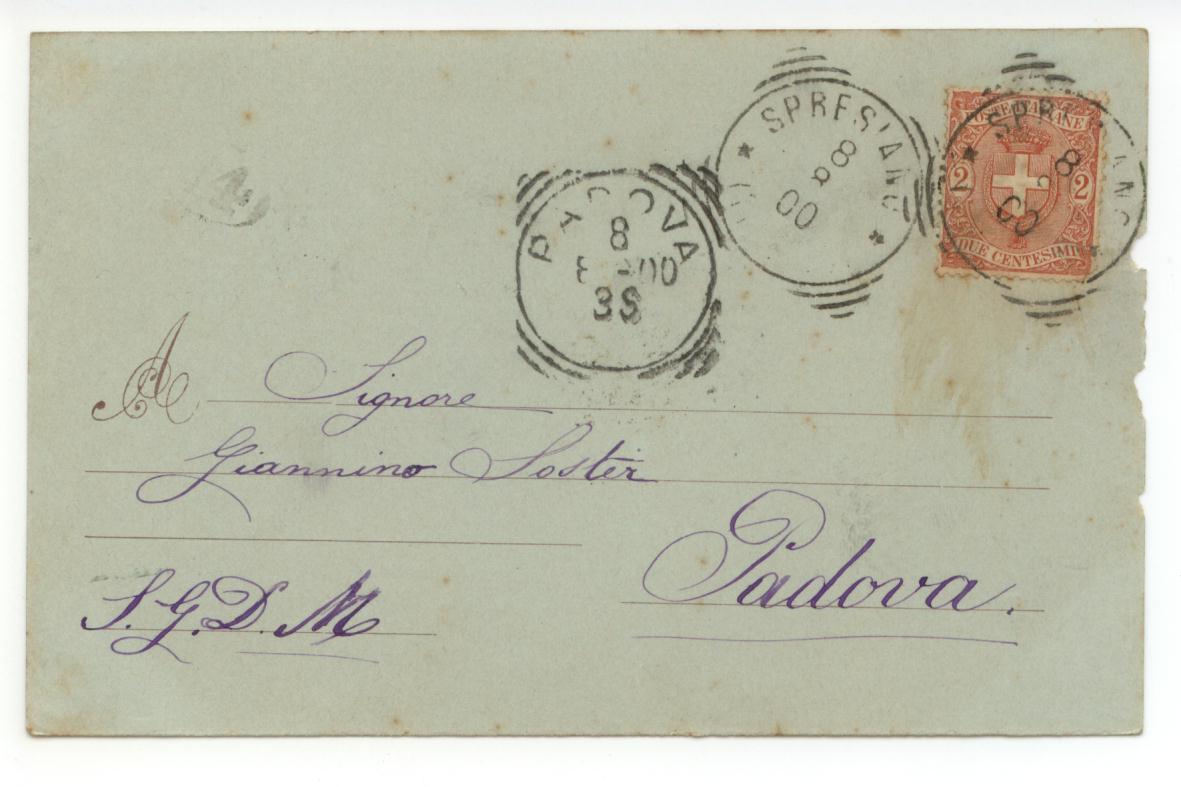 SPRESIANO
8 00
POSTE ITALIANE
2 2
DUE CENTESIMI
SPRESIANO
8
00
PADOVA
8
8 00
3S
A Signore
Giannino Soster
Padova.
S. G. D. M